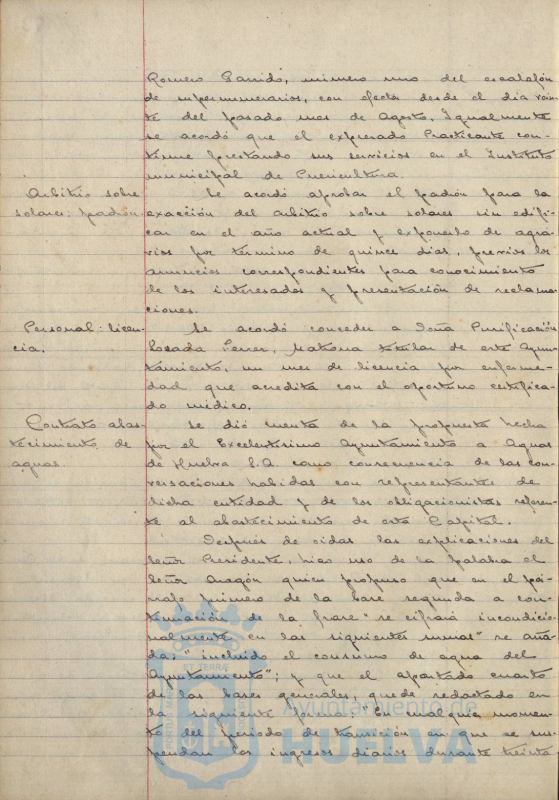 Romero Garrido, número uno del escalafón
de supernumerarios, con efectos desde el dia vein
te del pasado mes de Agosto. Igualmente
se acordó que el expresado Practicante con-
tinue prestando sus servicios en el Instituto
municipal de Puericultura.
Arbitrio sobre
solares: padrón
Se acordó aprobar el padrón para la
exacción del arbitrio sobre solares sin edifi-
car en el año actual y exponerlo de agra-
vios por término de quince dias, previos los
anuncios correspondientes para conocimiento
de los interesados y presentación de reclama-
ciones.
Personal: licen-
cia.
Se acordó conceder a Doña Purificación
Losada Ferrer, Matrona titular de este Ayun-
tamiento, un mes de licencia por enferme-
dad que acredita con el oportuno certifica-
do médico.
Contrato abas-
tecimiento de
aguas.
Se dió cuenta de la propuesta hecha
por el Excelentísimo Ayuntamiento a Aguas
de Huelva S.A. como consecuencia de las con-
versaciones habidas con representantes de
dicha entidad y de los obligacionistas referen-
te al abastecimiento de esta Capital.
Después de oidas las explicaciones del
Señor Presidente, hizo uso de la palabra el
Señor Aragón quien propuso que en el pá-
rrafo primero de la base segunda a con-
tinuación de la frase "se cifrará incondicio-
nalmente en las siguientes sumas" se aña-
da: "incluido el consumo de agua del
Ayuntamiento"; y que el apartado cuarto
de las bases generales, quede redactado en
la siguiente forma: "En cualquier momen-
to del periodo de transición en que se sus-
pendan los ingresos diarios durante treinta
Ayuntamiento de
HUELVA